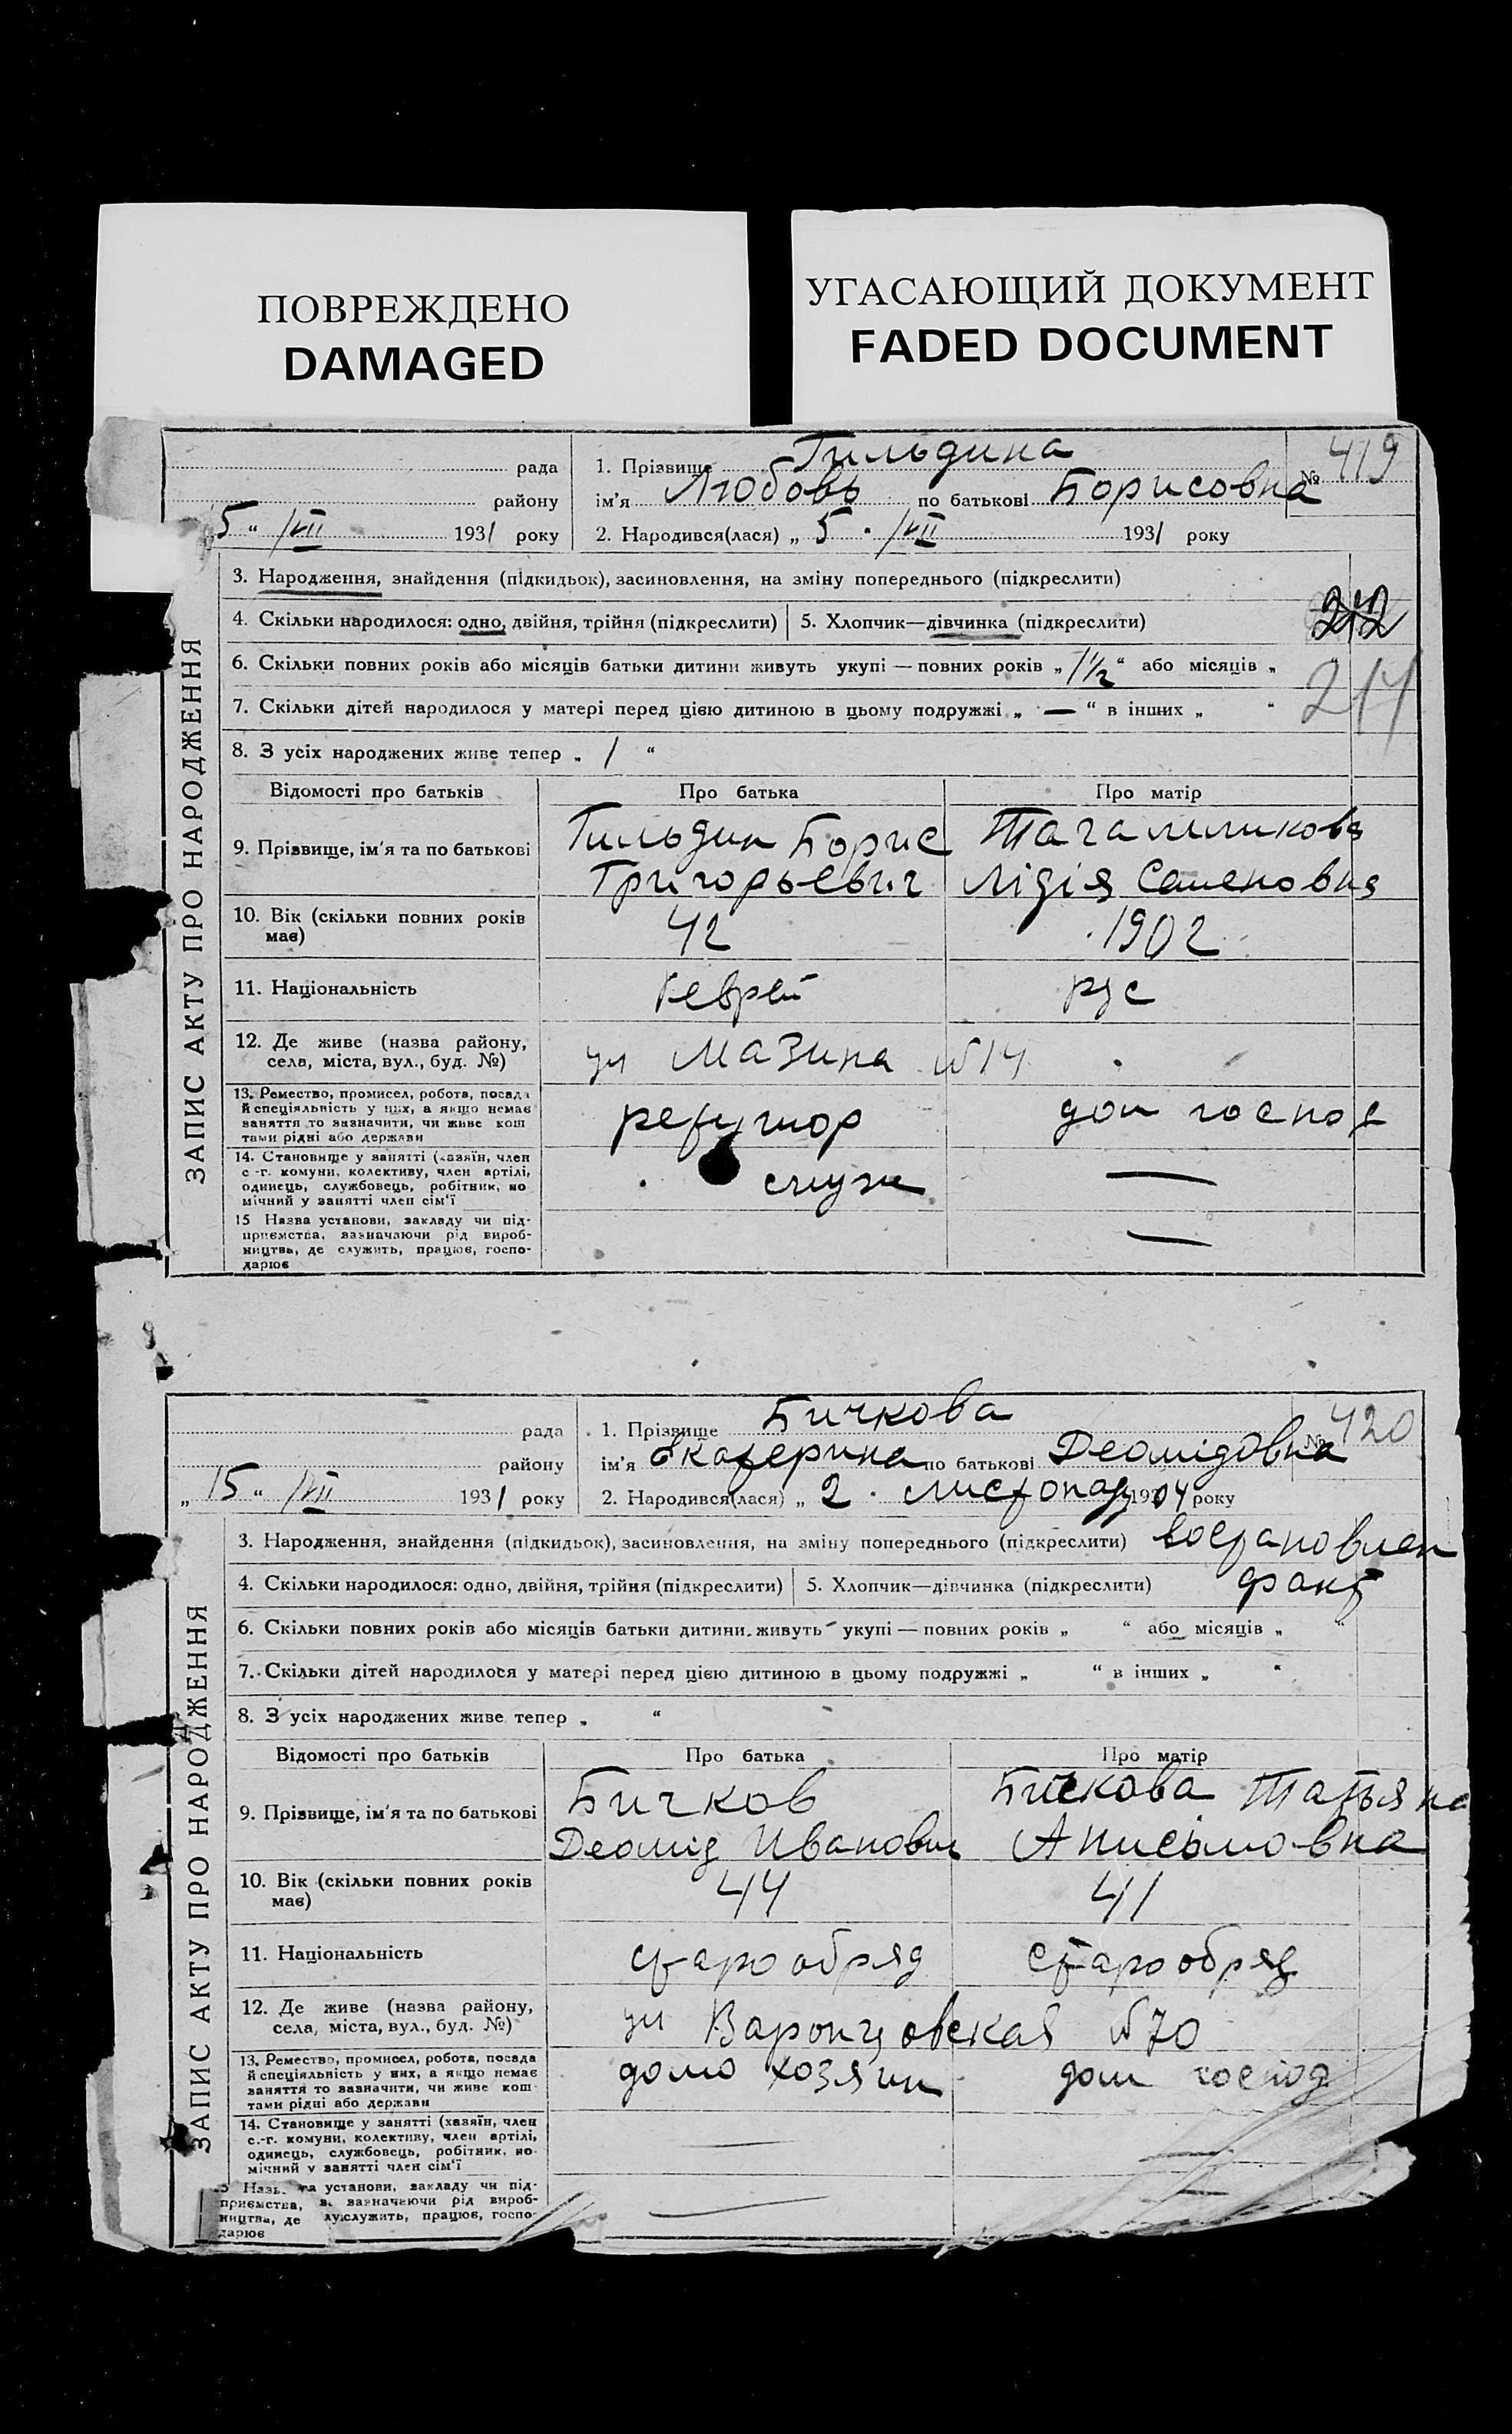 ПОВРЕЖДЕНО
DAMAGED
УГАСАЮЩИЙ ДОКУМЕНТ
FADED DOCUMENT
ЗАПИС АКТУ ПРО НАРОДЖЕННЯ
рада
району
5 “ VII 1931 року
1. Прізвище Гильдина
№ 419
ім'я Любовь по батькові Борисовна
2. Народився(лася) „ 5 “ VII 1931 року
3. Народження, знайдення (підкидьок), засиновлення, на зміну попереднього (підкреслити)
4. Скільки народилося: одно, двійня, трійня (підкреслити) 5. Хлопчик—дівчинка (підкреслити)
212
6. Скільки повних років або місяців батьки дитини живуть укупі — повних років „ 1½ “ або місяців „ “
214
7. Скільки дітей народилося у матері перед цією дитиною в цьому подружжі „ — “ в інших „ “
8. З усіх народжених живе тепер „ 1 “
Відомості про батьків Про батька Про матір
9. Прізвище, ім'я та по батькові
Гильдин Борис Григорьевич
Лідія Семеновна
10. Вік (скільки повних років має) 42 1902
11. Національність Геврей рус
12. Де живе (назва району, села, міста, вул., буд. №) ул Мазина №14
13. Ремество, промисел, робота, посада й спеціяльність у них, а якщо немає заняття то зазначити, чи живе коштами рідні або держави
дом господ
14. Становище у занятті (хазяїн, член с.-г. комуни, колективу, член артілі, одинець, службовець, робітник, помічний у занятті член сім'ї
служ —
15 Назва установи, закладу чи підприємства, зазначаючи рід виробництва, де служить, працює, господарює
—
ЗАПИС АКТУ ПРО НАРОДЖЕННЯ
рада
району
„ 15 “ VII 1931 року
1. Прізвище Бичкова
№ 420
ім'я Екатерина по батькові Деомідовна
2. Народився(лася) „ 2 “ листопада 1904 року
3. Народження, знайдення (підкидьок), засиновлення, на зміну попереднього (підкреслити) востановлен
4. Скільки народилося: одно, двійня, трійня (підкреслити) 5. Хлопчик—дівчинка (підкреслити) факт
6. Скільки повних років або місяців батьки дитини живуть укупі — повних років „ “ або місяців „ “
7. Скільки дітей народилося у матері перед цією дитиною в цьому подружжі „ “ в інших „ “
8. З усіх народжених живе тепер „ “
Відомості про батьків Про батька Про матір
9. Прізвище, ім'я та по батькові
Бичков Деомід Иванович
Бичкова Татьяна Анисімовна
10. Вік (скільки повних років має) 44 41
11. Національність старообряд старообряд
12. Де живе (назва району, села, міста, вул., буд. №) ул Варонцовская №70
13. Ремество, промисел, робота, посада й спеціяльність у них, а якщо немає заняття то зазначити, чи живе коштами рідні або держави
домо хозяин дом господ
14. Становище у занятті (хазяїн, член с.-г. комуни, колективу, член артілі, одинець, службовець, робітник, помічний у занятті член сім'ї
— —
установи, закладу чи підприємства, зазначаючи рід виробництва, де служить, працює, господарює
— —